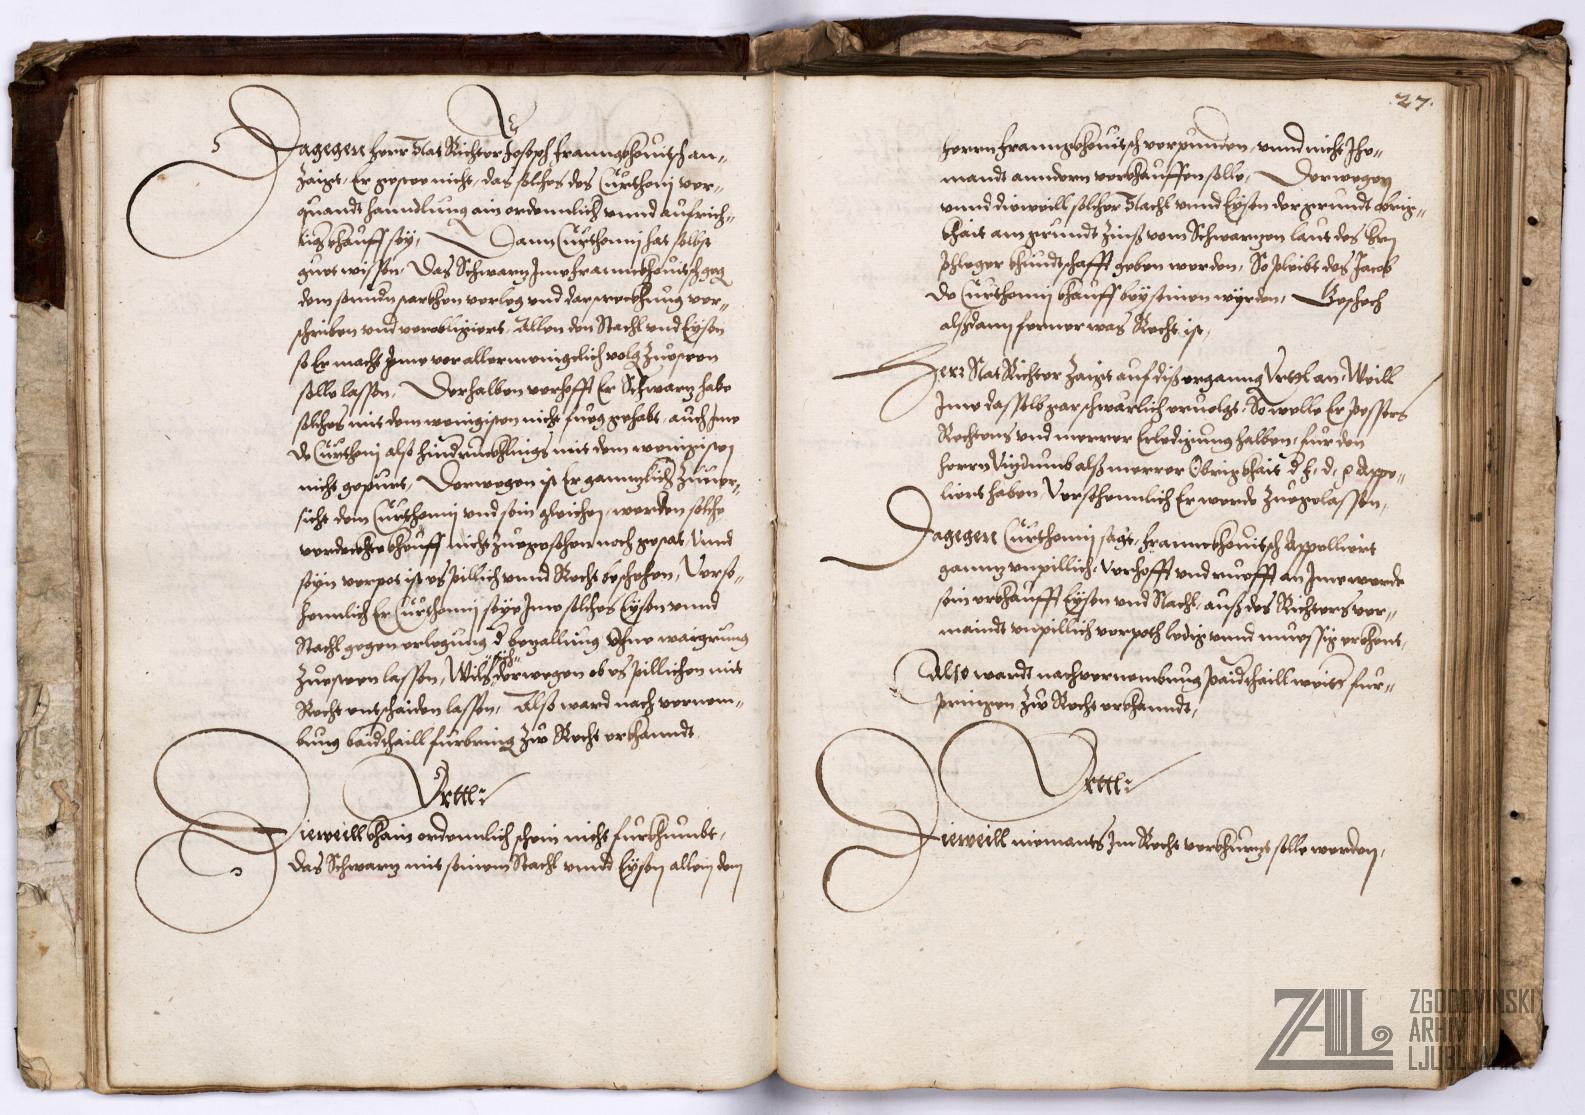 Dagegen herr Stat Richter Joseph Franngkhouitsch an-
zaigt, Er gestee nicht, das solches des Curthonj ver-
quandt hanndlung ain ordennlich vnnd aufrich-
tig khauff sey, Dann Curthonj hat selbst
guet wissen, Das Schwarz Ime Frannckhouitsch geg
dem
schriben vnd verobligiert, Allen den Stachl vnd Eysen
so Er macht Ime vor allermenigclich volg Zuesteen
solle lassen, Derhalben verhofft Er Schwarz habe
solches mit dem wenigisten nicht fueg gehabt, auch Ime
de Curthonj also hindruckhlings mit dem wenigisten
nicht gepurt, Derwegen ist Er ganntzlich Zuuer-
sicht dem Curthonj vnd sein gleichen, werden solche
verdeckhte khauff nicht Zuegesehen noch gestat, Vnnd
seyn verpot ist es pillich vnnd Recht beschehen, Verse-
hennlich Er Curthonj seye Ime solches Eysen vnnd
Stachl gegen erlegung d bezallung Ohne waigrung
Zuesteen lassen, Will sich derwegen ob es pillichen mit
Recht entschaiden lassen, Also ward nach vernem-
bung baidthaill furbring Zw Recht erkhanndt,
Vrttl:
Dieweill khain ordennlich schein nicht furkhumbt,
Das Schwarz mit seinem Stachl vnnd Eysen allein dem
27.
herrn Franngkhouitsch verpunden, vnnd nicht Ihe-
mandt anndern verkhauffen solle, Derwegen
vnnd dieweill solcher Stachl vnnd Eysen der grundt obrig-
khait am grundt Zinß vom Schwarzen laut des hrn
Phleger khundtschafft geben worden, So pleibt des Jacob
De Curthonj khauff bey seinen wirden, Geschech
alßdann ferner was Recht ist,
Herr Stat Richter Zaigt auf diß erganng Vrttl an, Weill
Ime dasselb gar schwärlich eruolgt, So welle Er pessers
Rechtens vnd merrer Erledigung halben, für den
herrn Vizdumb alß merrer Obrigkhait d. h. d. p. Appe-
liert haben, Versehennlich Er werde Zuegelassen,
Dagegen Curthonj sagt, Frannckhouitsch Appelliert
ganntz vnpillich, Verhofft vnd rueft an Ime werde
sein erkhaufft Eysen vnd Stachl, auß des Richters ver-
maindt vnpillich verpoth ledig vnnd muessig erkhent,
Also wardt nach vernembung paidthaill weitter fur-
pringen Zw Recht erkhanndt,
Vrttl:
Dieweill niemants Im Recht verkhurzt solle werden,
ZAL ZGODOVINSKI
ARHIV
LJUBLJANA